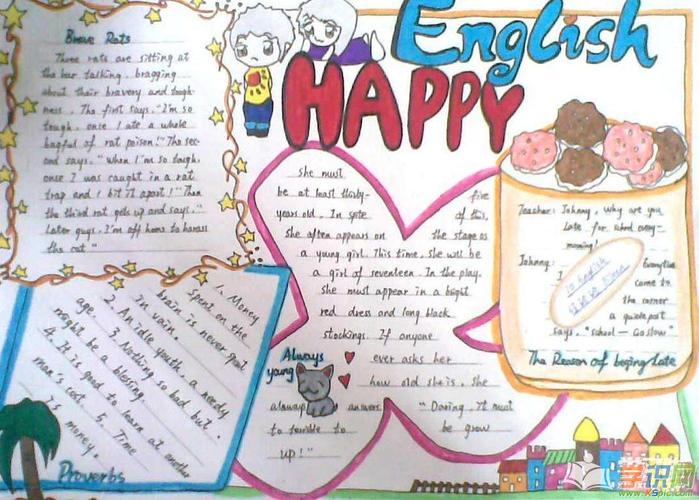 English
HAPPY
Brave Rats
Three rats are sitting at
the bar talking, bragging
about their bravery and tough-
ness. The first says, "I'm so
tough, once I ate a whole
bagful of rat poison!" The sec-
ond says, "When I'm so tough,
once I was caught in a rat
trap and I bit it apart!" Then
the third rat gets up and says, "
Later guys, I'm off home to harass
the cat."
she must
be at least thirty-five
years old. In spite of this,
she often appears on the stage as
a young girl. This time, she will be
a girl of seventeen. In the play,
she must appear in a bright
red dress and long black
stockings. If anyone
ever asks her
how old she is, she
always answers "Daring, it must
be grow
to terrible to
up!"
Always
young
Teacher: Johnny, why are you
late for school every-
morning?
Johnny: Everytime
I come to
the corner
a guidepost
says, "School — Go slow"
In English
The Reason of being late
1. Money
spent on the
brain is never spent
in vain.
2. An idle youth, a needy
age. 3. Nothing so bad but
might be a blessing.
4. It is good to learn at another
man's cost. 5. Time
is money.
Proverbs
学识网
www.XSpic.com